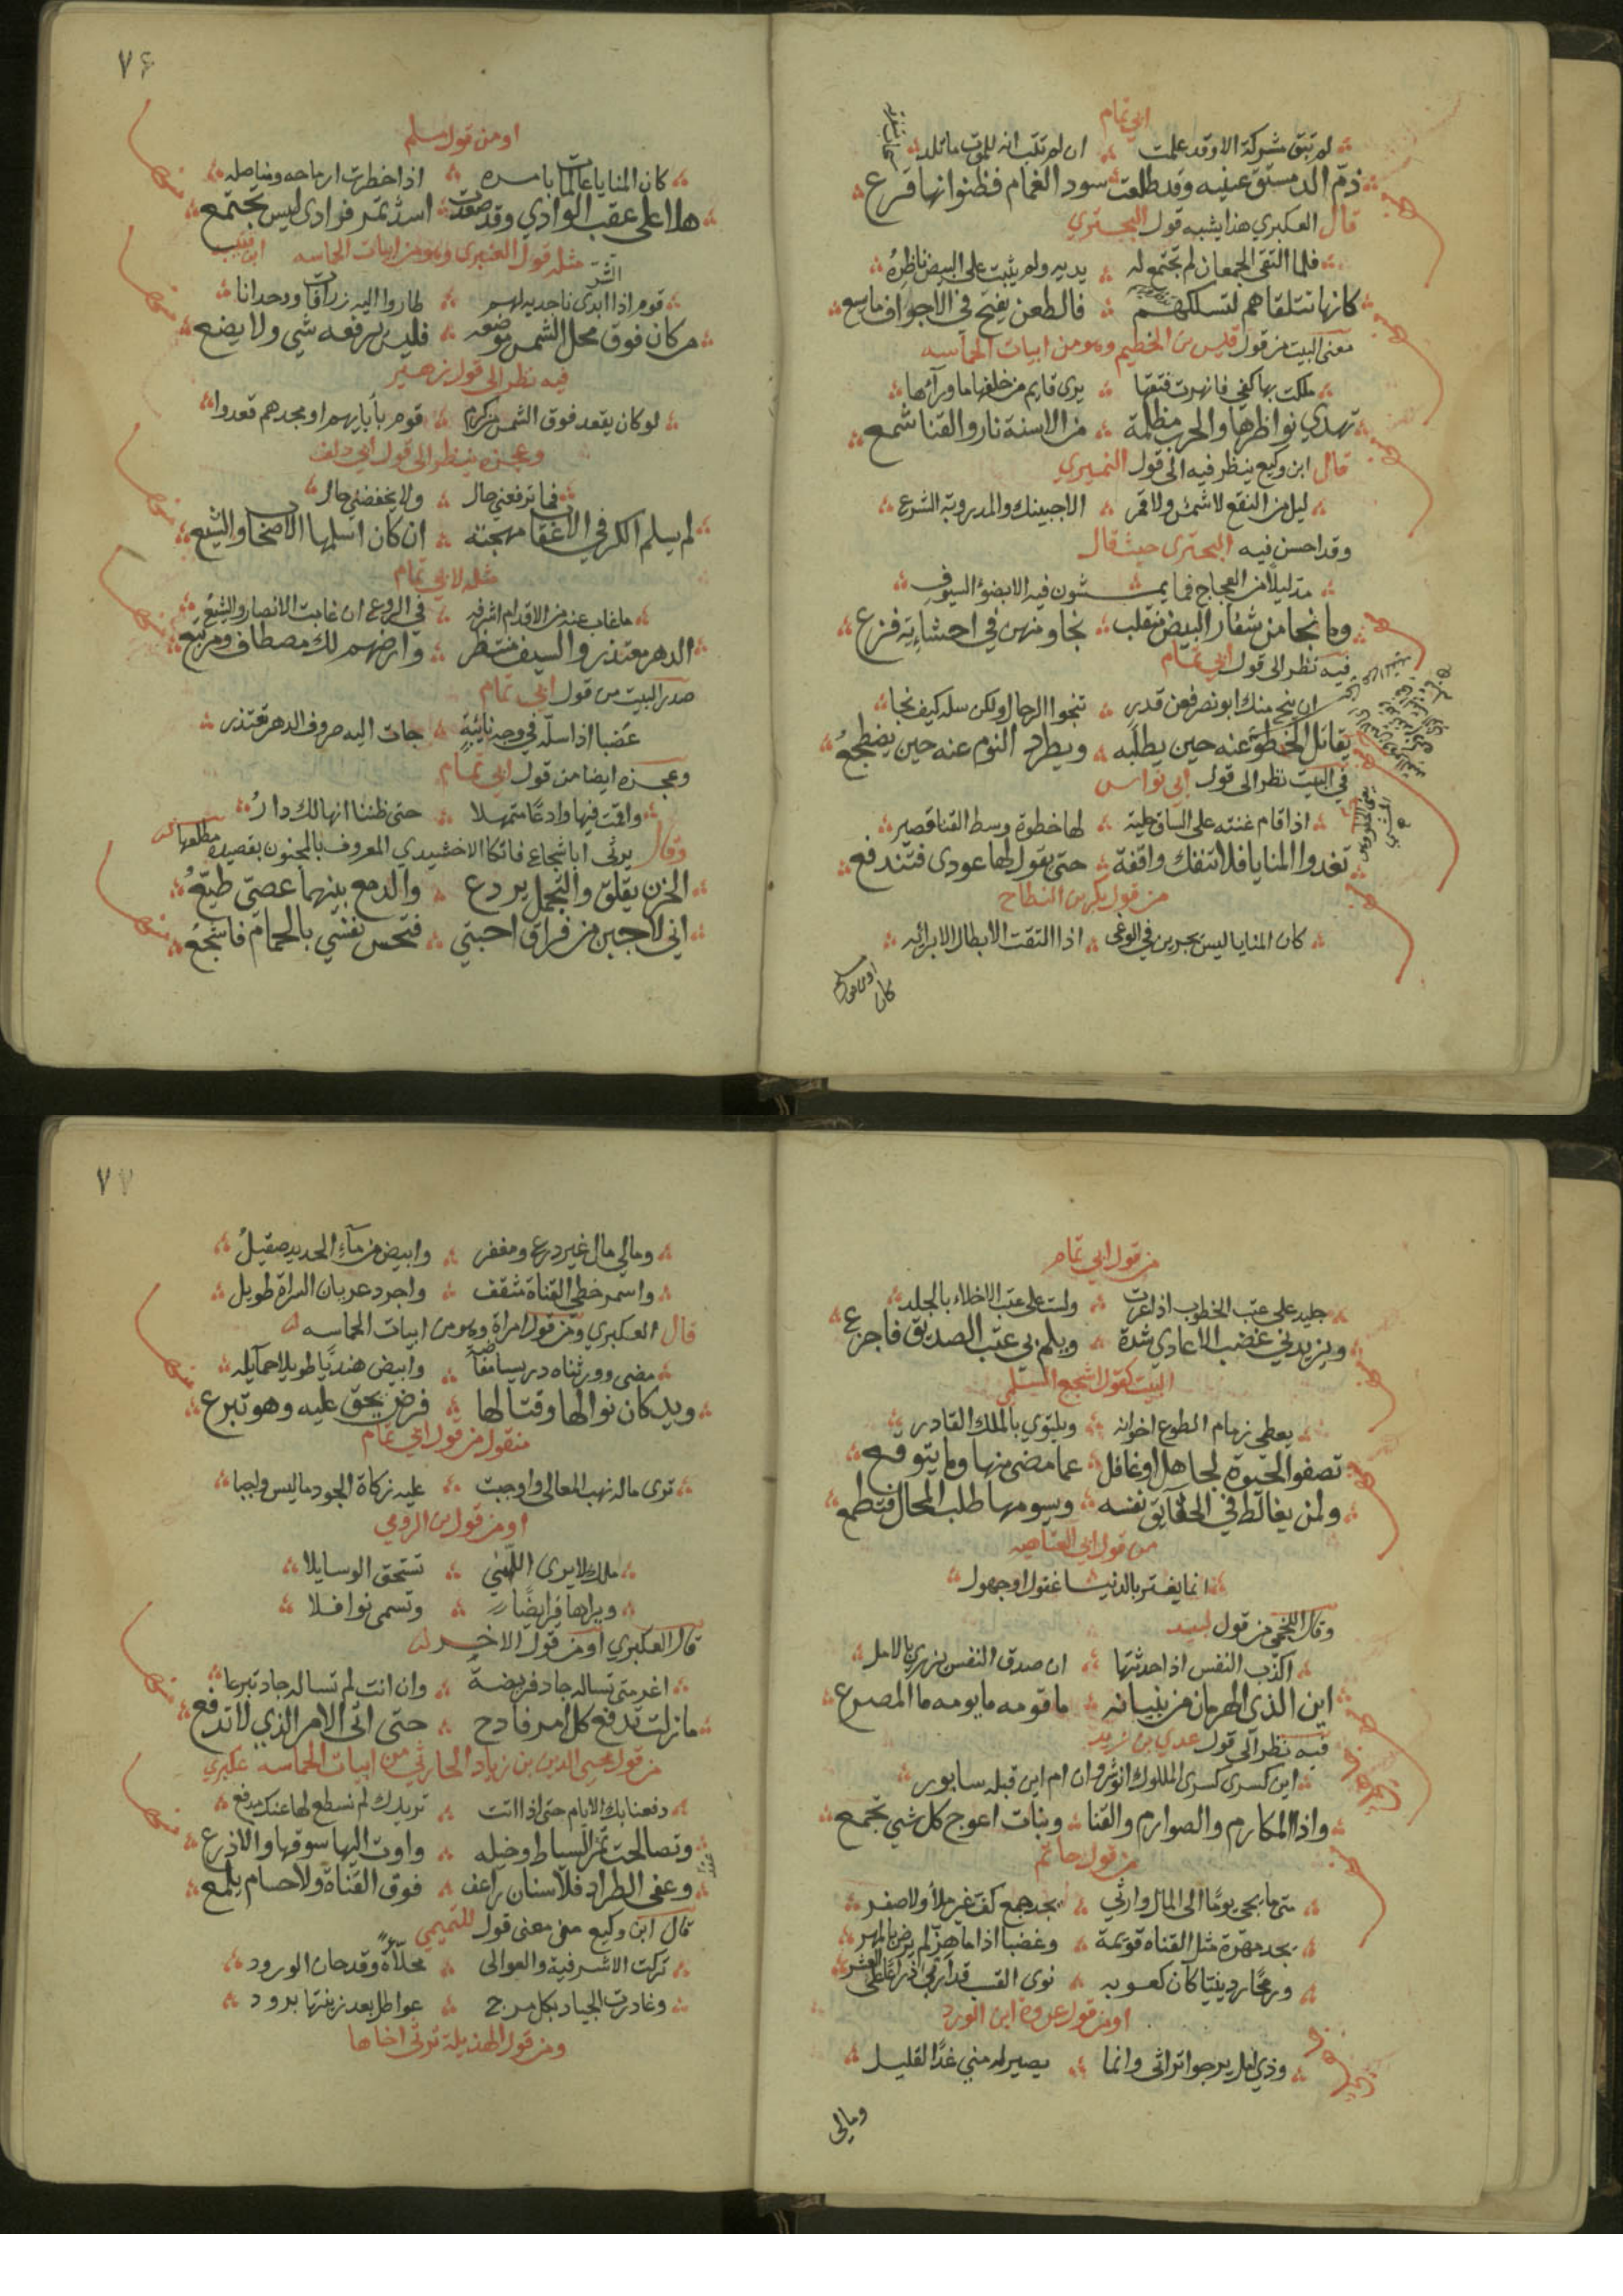 ابي تمام
لم تبق مشركة الا وقد علمت ان لم تتب انه للموت ما تلد
ذم الدمستق عينيه وقد طلعت سود الغمام فظنوا انها قزع
قال العكبري هذا يشبه قول البحتري
فلما التقى الجمعان لم تجتمع له يديه ولم يثبت على البيض ناظره
كانها تتلقاهم لتسلكهم فالطعن يفتح في الاجواف ما يسع
معنى البيت من قول قيس بن الخطيم وهو من ابيات الحماسه
ملكت بها كفي فانهرت فتقها يرى قايم من خلفها ما ورآءها
تهدي نواظرها والحرب مظلمة من الاسنة نار والقنا شمع
قال ابن وكيع ينظر فيه الى قول النميري
ليل من النقع لا شمس ولا قمر الا جبينك والمدروبة الشرع
وقد احسن فيه البحتري حيث قال
مد ليلاً من العجاج فما يمشون فيه الا بضوء السيوف
وما نجا من شفار البيض منفلت نجا ومنهن في احشاءيه فزع
فيه نظر الى قول ابي تمام
ان ينج منك ابو نصر فعن قدر تنجوا الرجال ولكن سله كيف نجا
يقاتل الخطو عنه حين يطلبه ويطرد النوم عنه حين يضطجع
في البيت نظر الى قول ابي نواس
اذا قام غنته على الساق حلية لها خطوة وسط القنا قصير
تغدوا المنايا فلا تنفك واقفة حتى يقول لها عودي فتندفع
من قول بكر بن النطاح
كان المنايا ليس يجرين في الوغى اذا التقت الابطال الا برائه
او من قول
كان
٧٦
او من قول مسلم
كان المنايا عالمات بامره اذا خطرت ارماحه ومناصله
هلا على عقب الوادي وقد صعدت اسد تمر فرادى ليس تجتمع
مثله قول العنبري وهو من ابيات الحاسه
قوم اذا الشر ابدى ناجذيه لهم طاروا اليه زرافات ووحدانا
من كان فوق محل الشمس موضعه فليس يرفعه شي ولا يضع
فيه نظر الى قول زهير
لو كان يقعد فوق الشمس من كرم قوم بأبايهم او مجدهم قعدوا
وعجزه ينظر الى قول ابي دلف
فما ترفعني حال ولا يخفضني حال
لم يسلم الكر في الاعقاب مهجته ان كان اسلمها الاصحاب والشيع
مثله لابي تمام
ما غاب عنه من الاقدام اشرفه في الروع ان غابت الانصار والشيع
الدهر معتذر والسيف منتظر وارضهم لك مصطاف ومرتبع
صدر البيت من قول ابي تمام
عضبا اذا سله في وجه نائبة جات اليه صروف الدهر تعتذر
وعجزه ايضا من قول ابي تمام
واقمت فيها وادعًا متمهلا حتى ظننا انها لك دار
وقال يرثى ابا شجاع فاتكا الاخشيدي المعروف بالمجنون بقصيده مطلعها
الحزن يقلق والتجمل يردع والدمع بينهما عصى طيع
اني لاجبن من فراق احبتي فتحس نفسي بالحمام فاشجع
من قول ابي تمام
جليد على عتب الخطوب اذا عرت ولست على عتب الاخلاء بالجلد
ويزيدني غضب الاعادي شدة ويلم بي عتب الصديق فاجزع
البيت كقول اشجع السلمي
يعطي زمام الطوع اخوانه ويلتوي بالملك القادر
تصفوا الحيوة لجاهل او غافل عما مضى منها وما يتوقع
ولمن يغالط في الحقايق نفسه ويسومها طلب المحال فتطمع
من قول ابي العتاهيه
انما يغتر بالدنيا غفول او جهول
وقال اللخمي من قول لبيد
اكذب النفس اذا حدثتها ان صدق النفس يزري بالامل
اين الذي الهرمان من بنيانه ما قومه ما يومه ما المصرع
فيه نظر الى قول عدي بن زيد
اين كسرى كسرى الملوك انوشروان ام اين قبله سابور
واذا المكارم والصوارم والقنا وبنات اعوج كل شي تجمع
من قول حاتم
متى ما يجى يومًا الى المال وارثي يجد جمع كف غير ملأ ولا صفر
يجد مهرة مثل القناه قويمة وعضبا اذا ما هز لم يرض بالهبر
ورمحًا ردينيًا كان كعوبه نوى القسب قد اربى ذراعًا على العشر
او من قول عروة ابن الورد
وذي امل يرجوا تراثى وانما يصير له مني غدًا لقليل
ومالي
٧٧
ومالي مال غير درع ومغفر وابيض من مآء الحديد صقيل
واسمر خطي القناة مثقف واجرد عريان السراة طويل
قال العكبري ومن قول امراة وهو من ابيات الحماسه
مضى وورثناه دريس مفاضة وابيض هنديًا طويلا حمآيله
ويد كان نوالها وقتالها فرض يحق عليه وهو تبرع
منقول من قول ابي تمام
ترى ماله نهب المعالي واوجبت عليه زكاة الجود ما ليس واجبا
او من قول بن الرومي
ملك لا يرى اللهى تستحق الوسايلا
ويراها فرايضًا وتسمى نوافلا
قال العكبري او من قول الاخر
اغر متى تساله جاد فريضة وان انت لم تساله جاد تبرعا
ما زلت تدفع كل امر فادح حتى اتى الامر الذي لا تدفع
من قول محيى الدين بن زياد الحارثي من ابيات الحماسه عكبري
دفعنا بك الايام حتى اذا اتت تريدك لم نسطع لها عنك مدفع
وتصالحت ثمر السياط وخيله واوت اليها سوقها والاذرع
وعفى الطراد فلا سنان راعف فوق القناة ولا حسام يلمع
قال ابن وكيع معنى قول التميمي
تركت الاشرفية والعوالى محلاة وقد حان الورود
وغادرت الجياد بكل مرج عواطل بعد زينتها برود
ومن قول الهذيلة ترثى اخاها